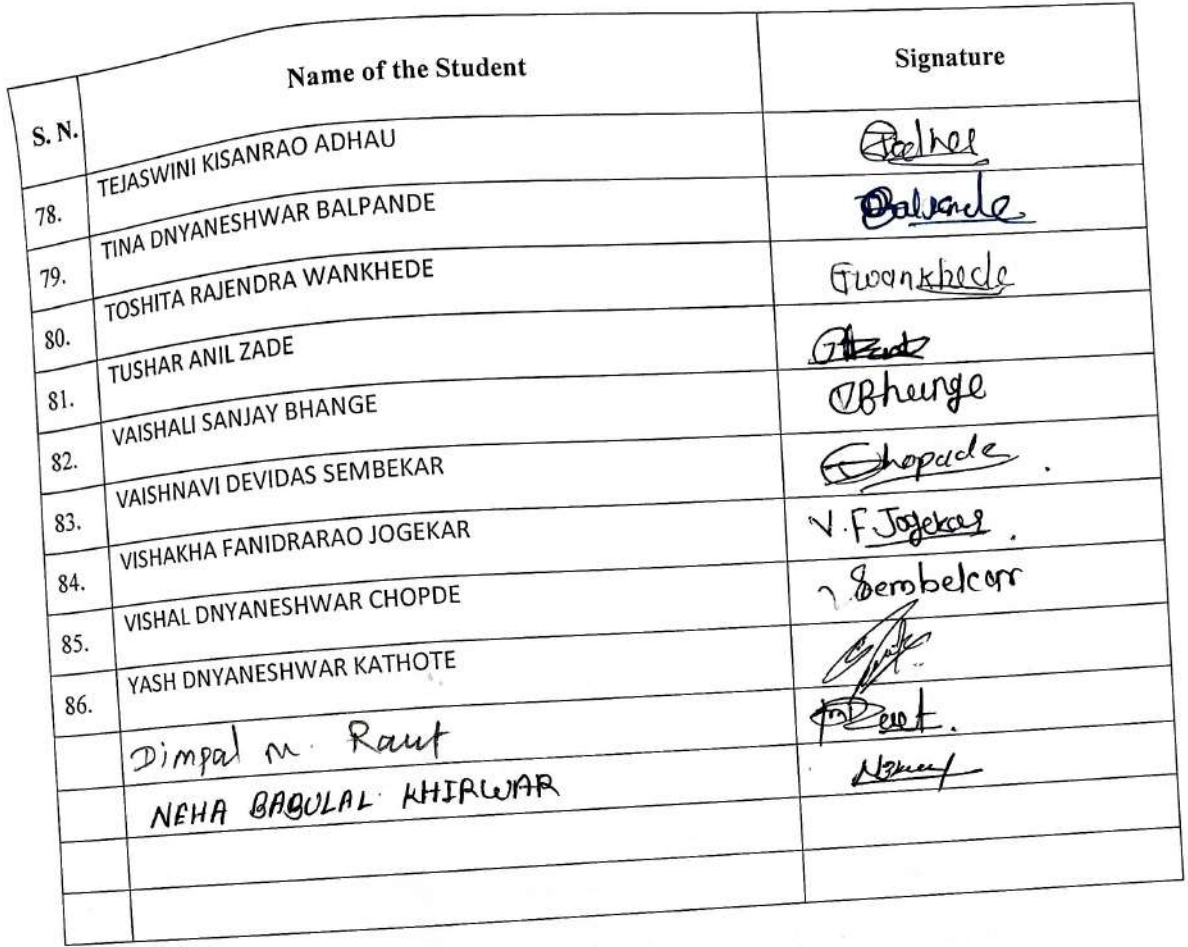 S. N. Name of the Student Signature
78. TEJASWINI KISANRAO ADHAU
79. TINA DNYANESHWAR BALPANDE Balpande
80. TOSHITA RAJENDRA WANKHEDE Twankhede
81. TUSHAR ANIL ZADE
82. VAISHALI SANJAY BHANGE VBhange
83. VAISHNAVI DEVIDAS SEMBEKAR Chopade
84. VISHAKHA FANIDRARAO JOGEKAR V.F. Jogekar
85. VISHAL DNYANESHWAR CHOPDE Sembekar
86. YASH DNYANESHWAR KATHOTE
Dimpal M. Raut
NEHA BABULAL KHIRWAR